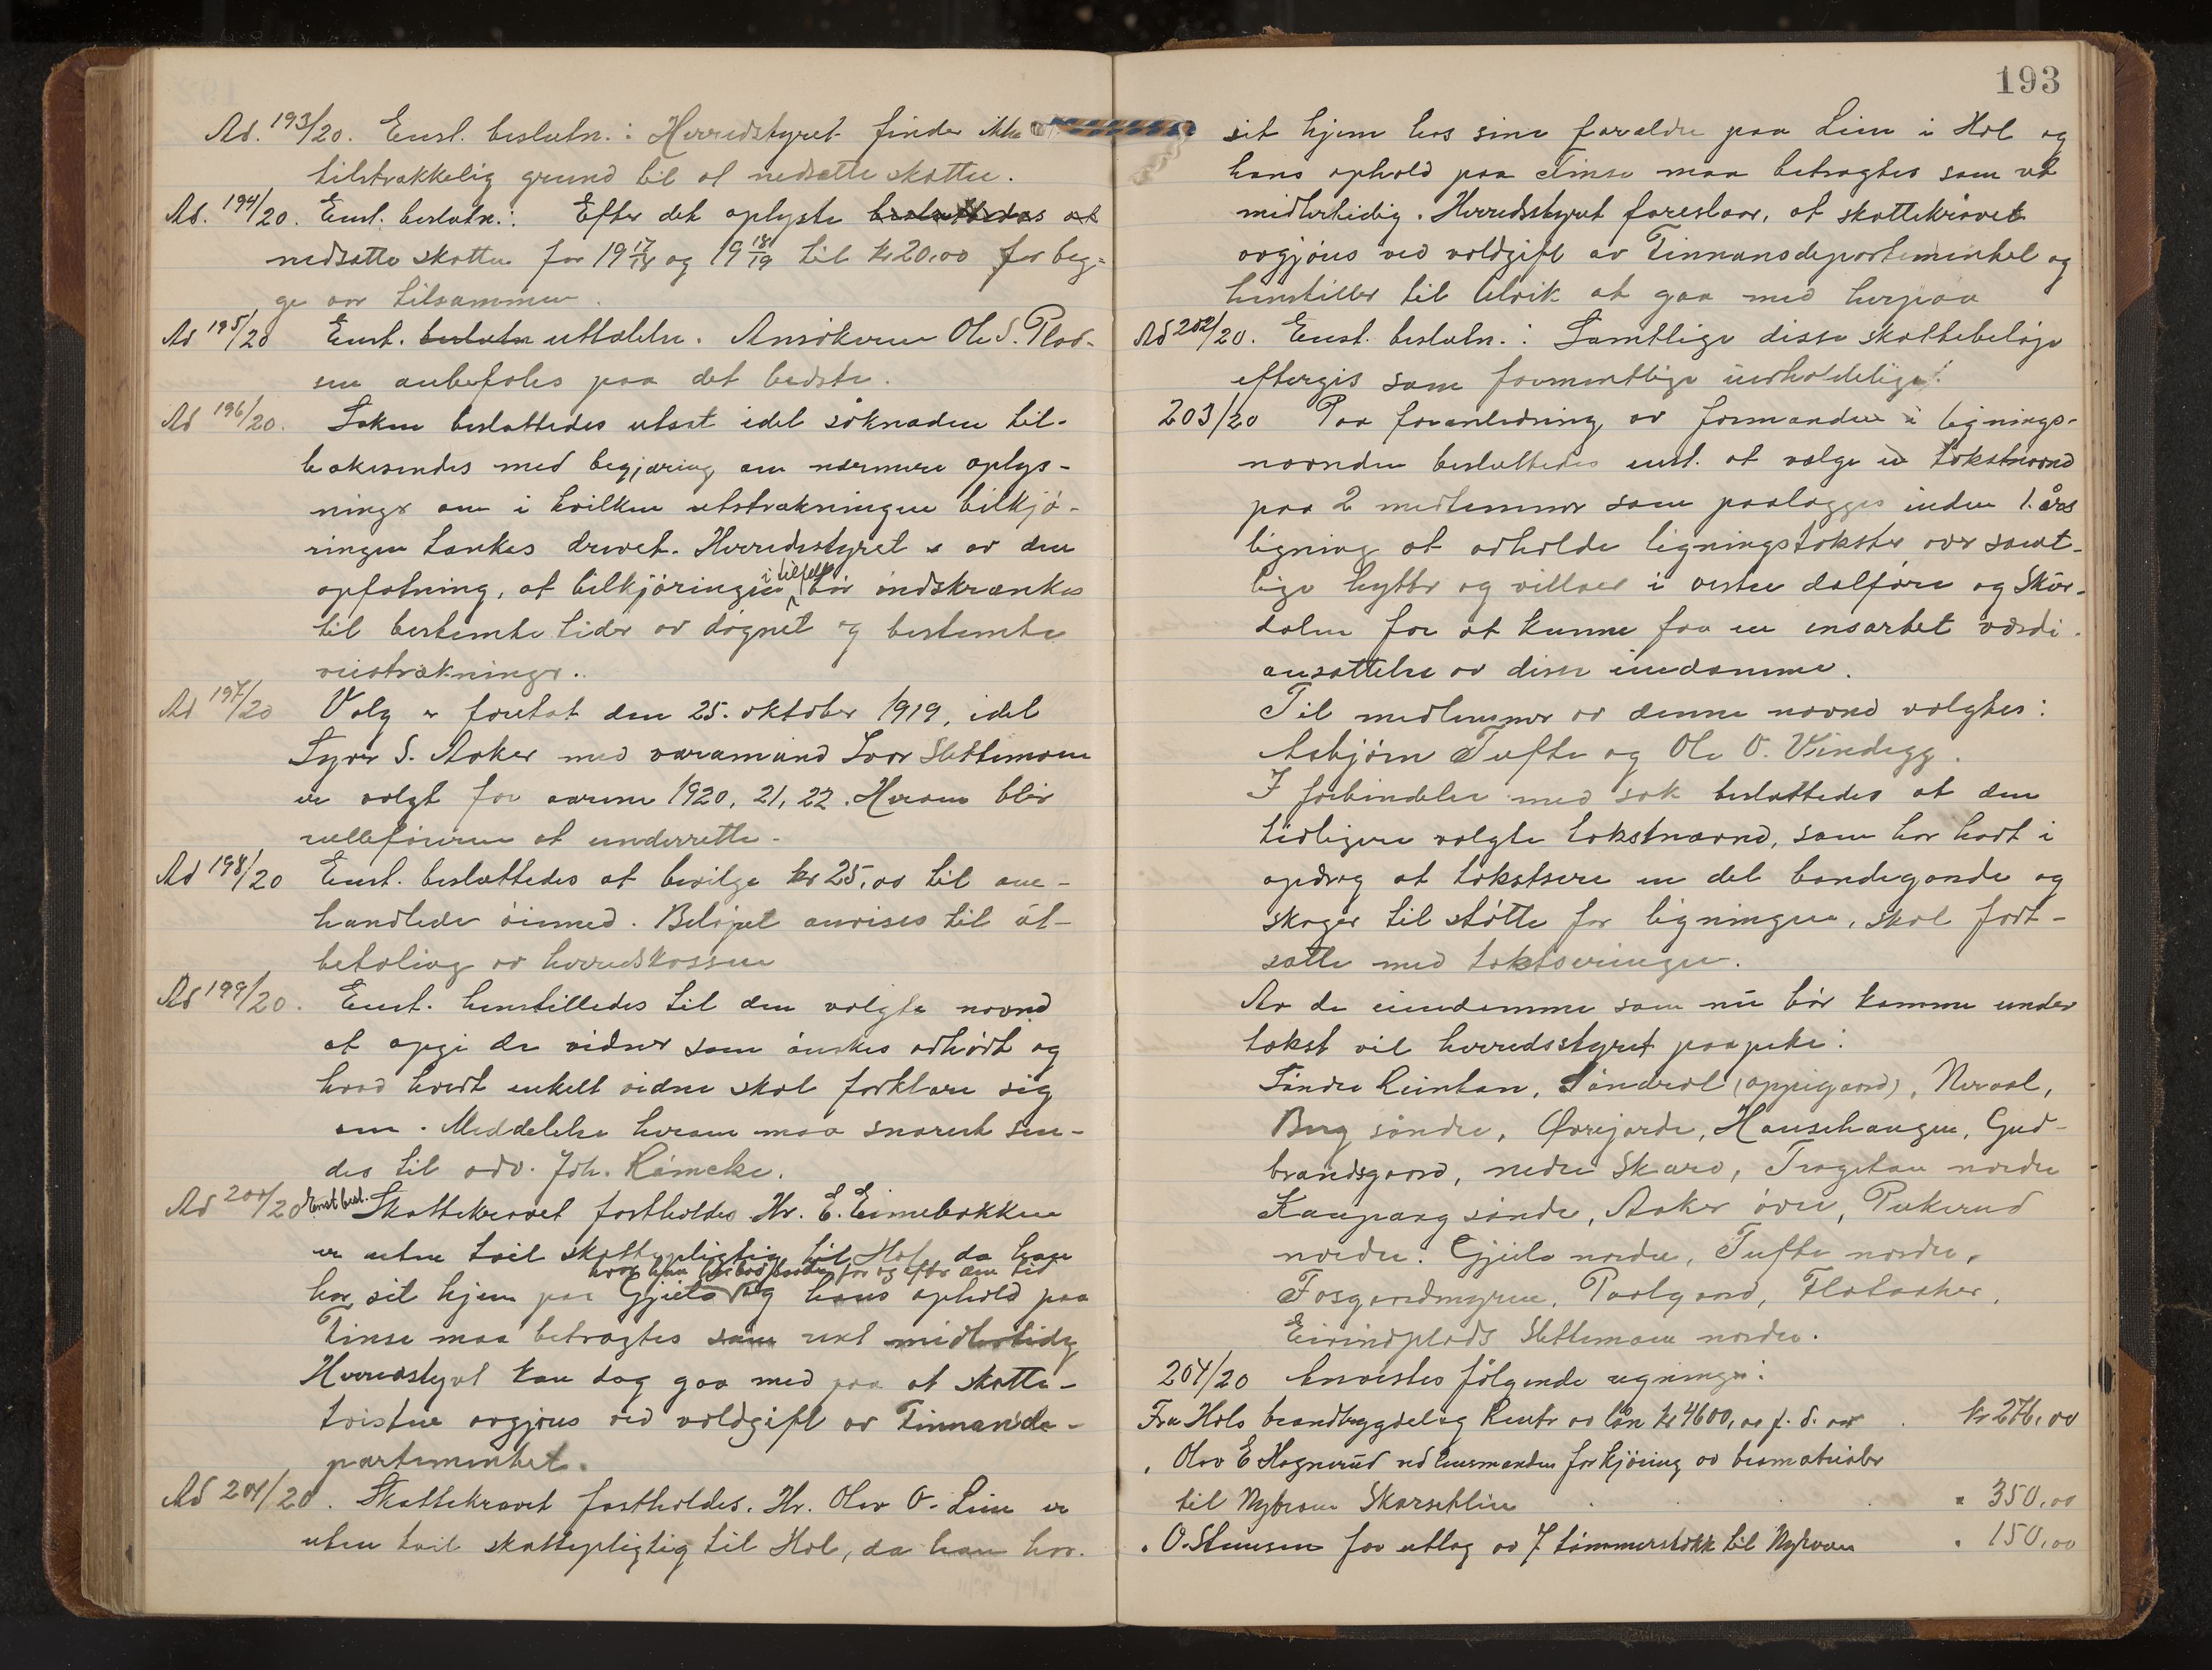 Ad. 193/20. Enst. beslutn.: Herredstyret finder ikke
tilstrækkelig grund til at nedsætte skatten.
Ad. 194/20. Enst. beslutn.: Efter det oplyste besluttedes at
nedsætte skatten for 19 17/18 og 19 18/19 til kr 20,00 for beg-
ge aar tilsammen.
Ad 195/20 Enst. beslutn uttalelse. Ansökeren Ole S.
sen anbefales paa det bedste.
Ad 196/20. Saken besluttedes utsat idet söknaden til-
bakesendes med begjæring om nærmere oplys-
ninger om i hvilken utstrækningen bilkjö-
ringen tænkes drevet. Herredsstyret er av den
opfatning, at bilkjöringen i tilfelle bör indskrænkes
til bestemte tider av dögnet og bestemte
veistrækninger.
Ad 197/20 Valg er foretat den 25. oktober 1919, idet
Syver S. Aaker med varamand Ivar Slettemoen
er valgt for aarene 1920, 21, 22. Herom blir
rulleföreren at underrette.
Ad 198/20 Enst. besluttedes at bevilge kr 25,00 til om-
handlede öiemed. Belöpet anvises til ut-
betaling av herredskassen
Ad 199/20. Enst. henstilledes til den valgte nævnd
at opgi de vidner som önskes avhört og
hvad hvert enkelt vidne skal forklare sig
om. Meddelelse herom maa snarest sen-
des til adv. Joh. Rämcke.
Ad 200/20 Enst besl. Skattekravet fastholdes Hr. E. Eimebakken
er uten tvil skattepligtig til Hol, da han
hvor han for og efter den tid
har sit hjem paa Gjeilo og hans ophold paa
Finse maa betragtes som rent midlertidig
Herredstyret kan dog gaa med paa at skatte-
tvisten avgjöres ved voldgift av Finnansde-
partementet.
Ad 201/20. Skattekravet fastholdes. Hr. Olav O. Lien er
uten tvil skattepligtig til Hol, da han har.
193
sit hjem hos sine forældre paa Lien i Hol og
hans ophold paa Finse maa betragtes som et
midlertidig. Herredsstyret foreslaar, at skattekravet
avgjöres ved voldgift av Finnansdepartementet og
henstiller til Ulvik at gaa med herpaa
Ad 202/20. Enst. beslutn.: Samtlige disse skattebelöp
eftergis som formentlige uerholdelige.
203/20 Paa foranledning av formanden i lignings-
nævnden besluttedes enst. at vælge en takstnævnd
paa 2 medlemmer som paalægges inden 1. års
ligning at avholde ligningstakster over samt-
lige hytter og villaer i vestre dalföre og Skur-
dalen for at kunne faa en ensartet værdi-
ansættelse av disse eiendomme.
Til medlemmer av denne nævnd valgtes:
Asbjörn Tufte og Ole O. Vindegg.
I forbindelse med sak besluttedes at den
tidligere valgte takstnævnd, som har hadt i
opdrag at takstsere en del bondegaarde og
skoger til stötte for ligningen, skal fort-
sætte med takstseringen.
Av de eiendomme som nu bör komme under
takst vil herredsstyret paapeke:
Söndre Reinton, Sönderål (oppigaard), Neraal,
Berg söndre, Övrejorde, Hansehaugen, Gud-
brandsgaard, nedre Skaro, Trageton nordre
Kaupang söndre, Aaker övre, Pukerud
nordre. Gjeilo nordre, Tufte nordre,
Fosgaardmyren, Paalgaard, Flataaker,
Eivindplads Slettemoen nordre.
204/20 Anvistes fölgende regninger:
Fra Hols brandbygdelag Renter av lån kr 4600,00 f. d. aar . kr 276,00
" Olav E Hagnerud ved lensmanden for kjöring av materialer
til Nybroen Skarsetlien " 350,00
" O. Steinsen for utlæg av 7 tömmerstokk til Nybroen " 150,00